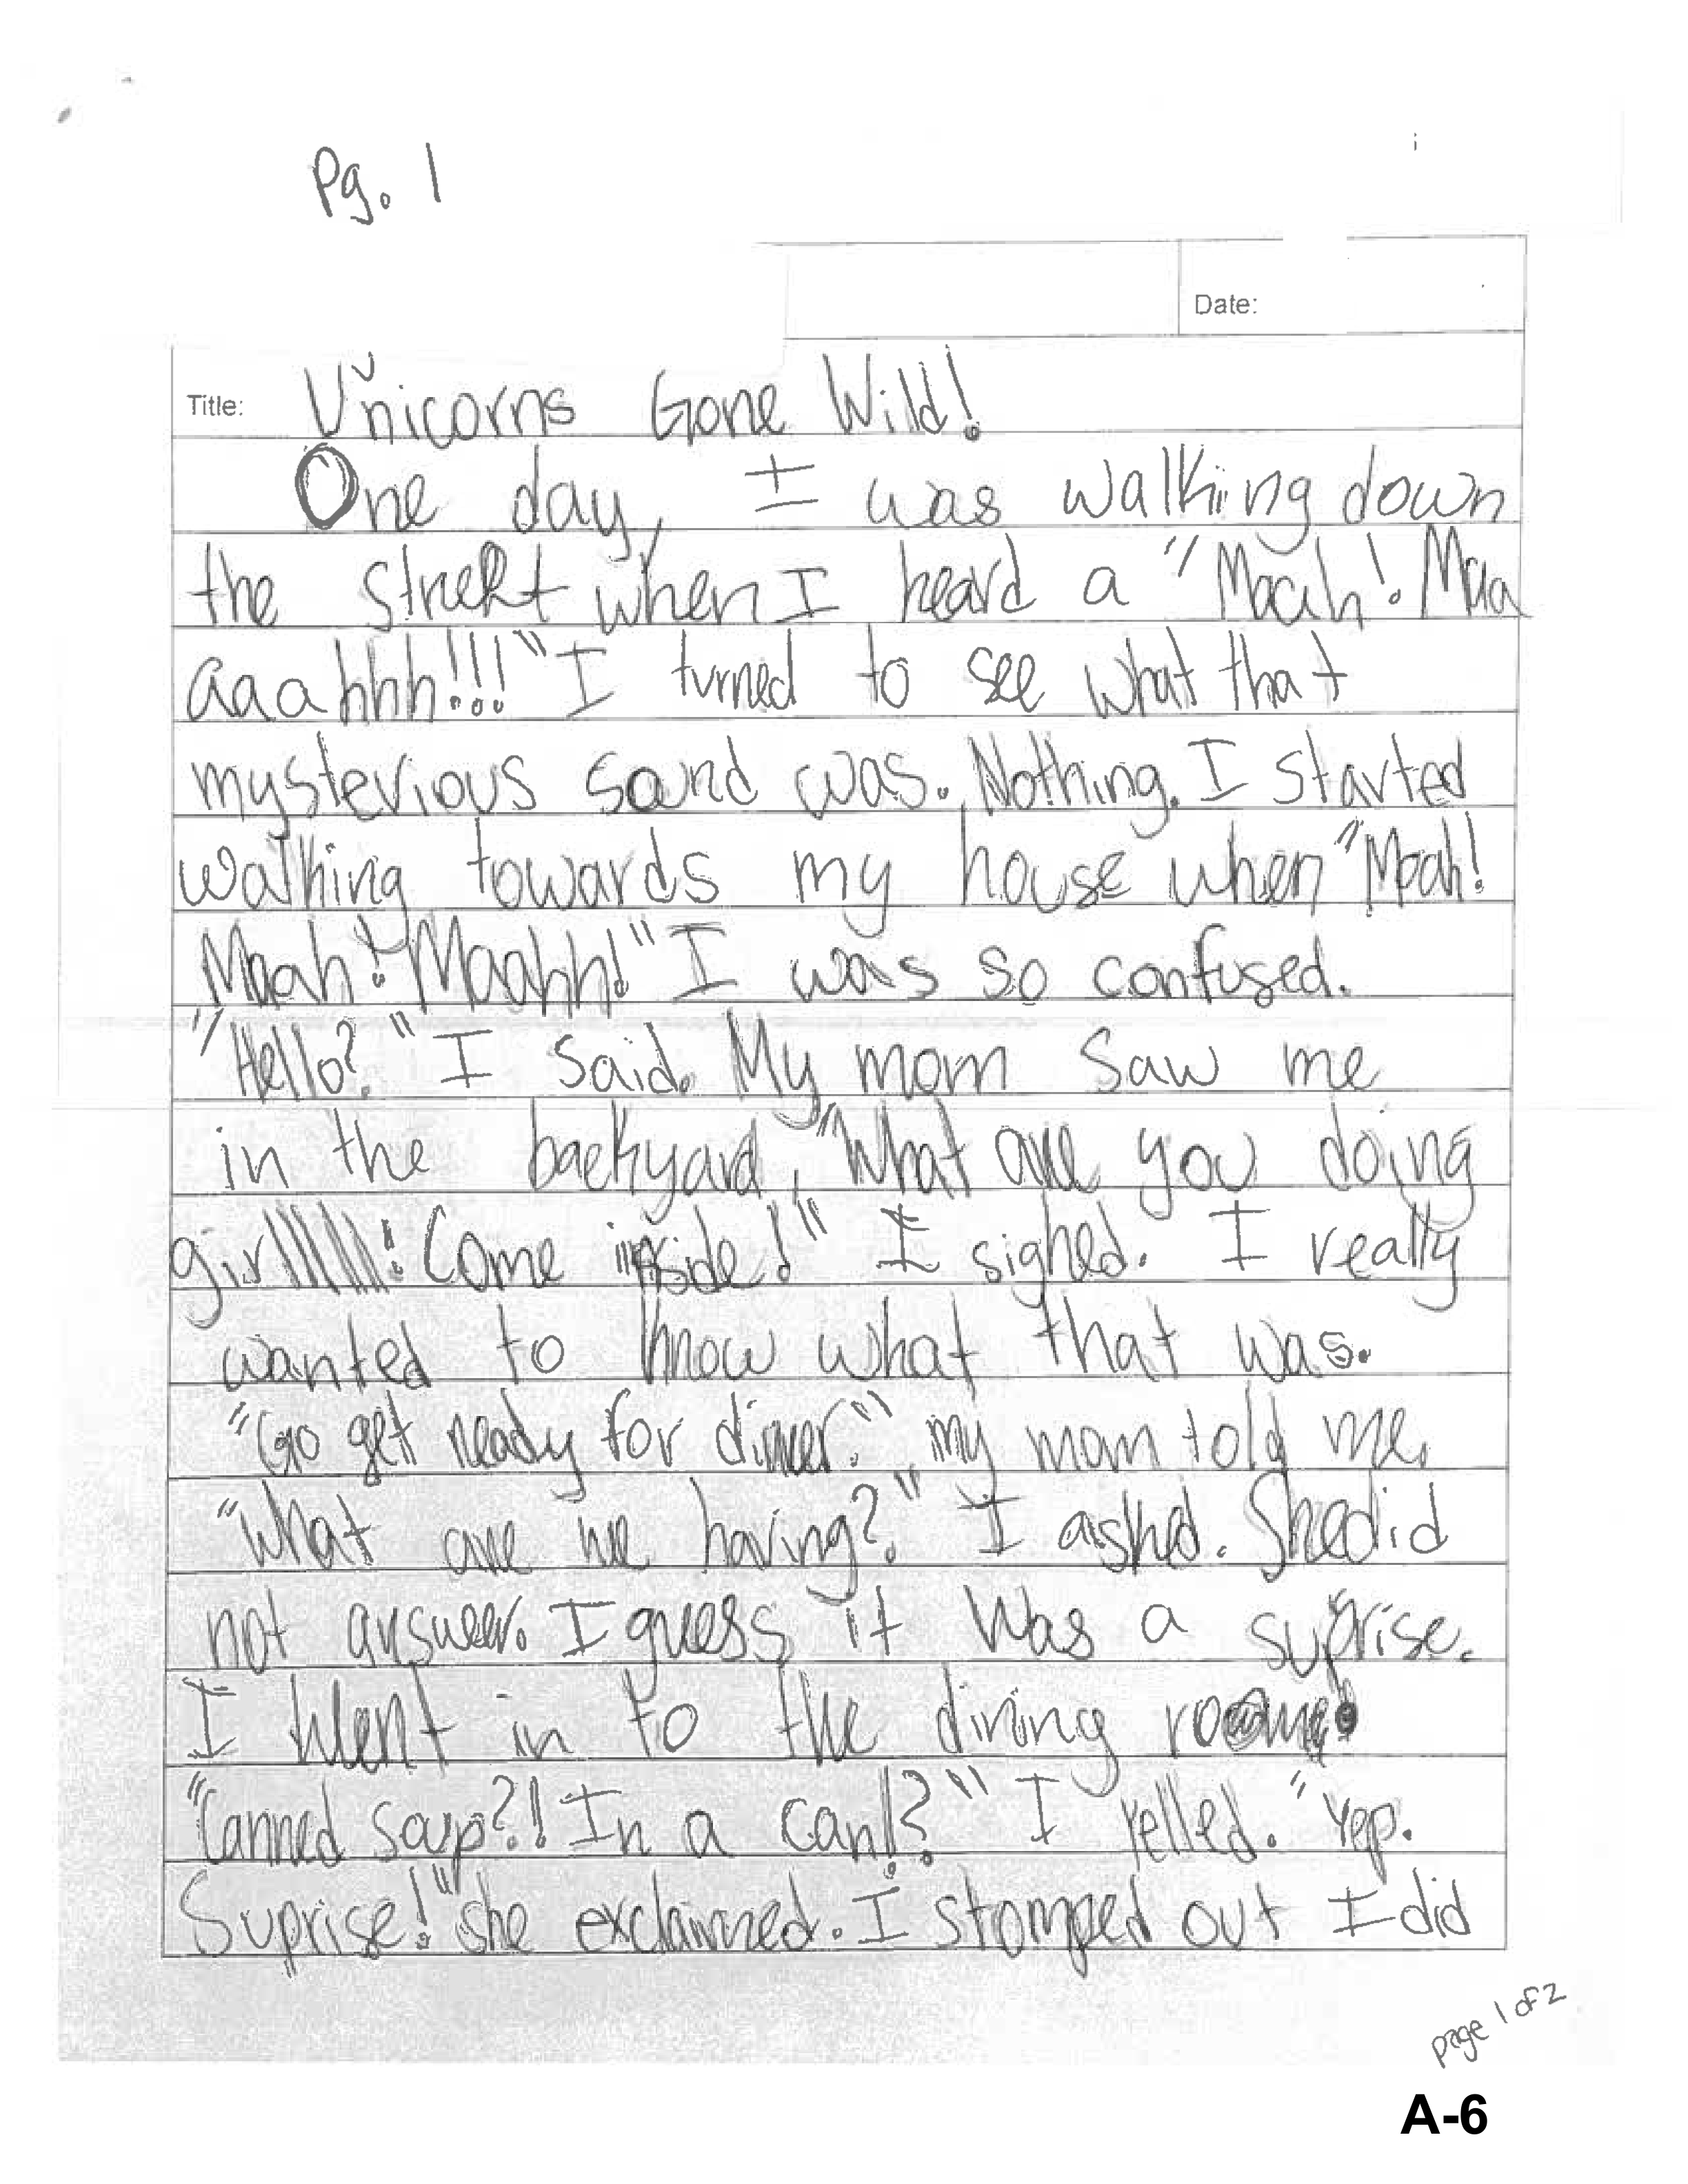 Pg. 1
Date:
Title: Unicorns Gone Wild!
One day, I was walking down
the street when I heard a "Maah! Maa
aaahhh!!!" I turned to see what that
mysterious sound was. Nothing. I started
walking towards my house when "Maah!
Maah! Maahh!" I was so confused.
"Hello?" I said. My mom saw me
in the backyard, "What are you doing
girlllllll! Come inside!" I sighed. I really
wanted to know what that was.
"Go get ready for dinner." my mom told me.
"What are we having?" I asked. She did
not answer. I guess it was a suprise.
I went in to the dining room.
"Canned soup?! In a can!?" I yelled. "Yep.
Suprise!" she exclaimed. I stomped out I did
page 1 of 2
A-6